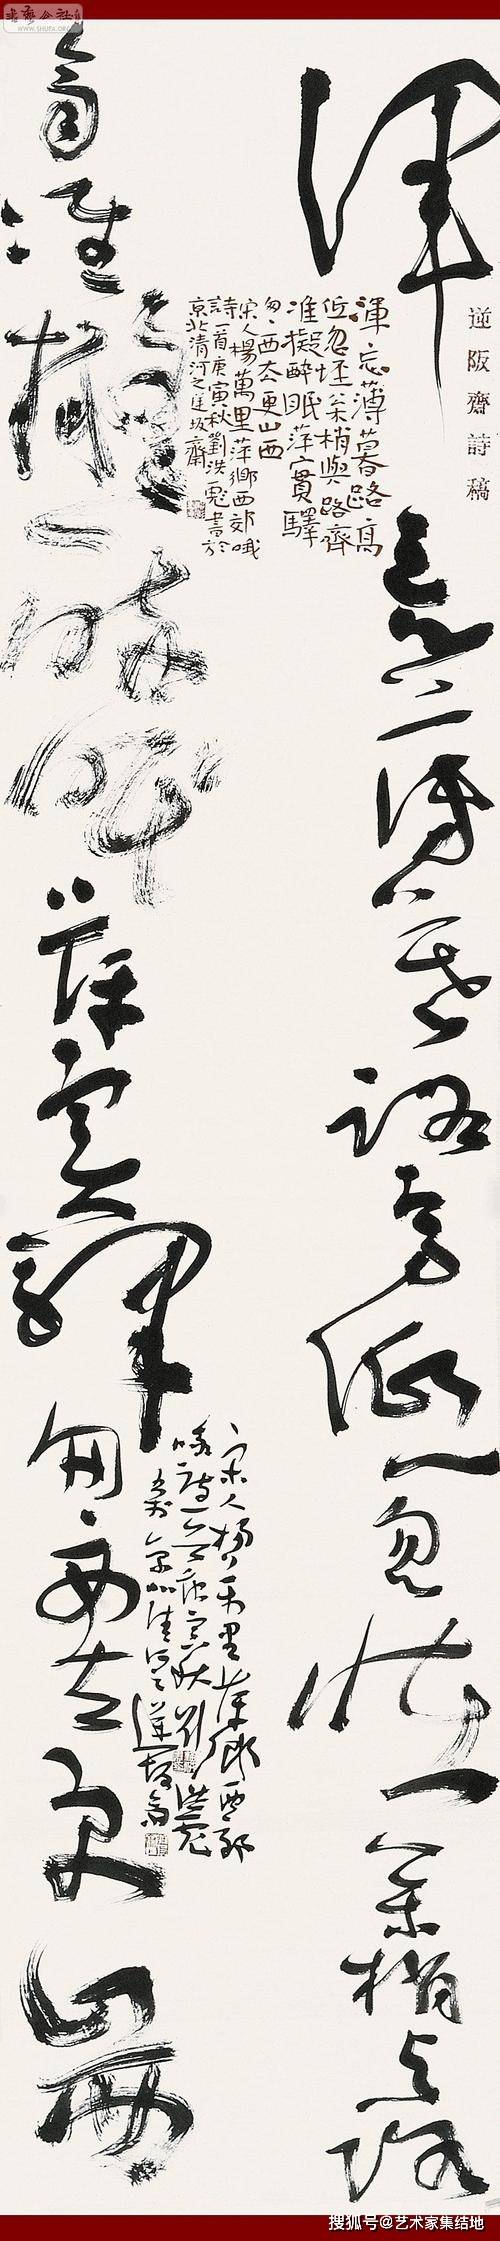 書法公社
WWW.SHUFA.ORG
逆阪齋詩稿
渾忘薄暮路高低忽怪桑梢與路
齊准擬醉眠萍實驛匆匆西去更山西
渾忘薄暮路高
低忽怪桑梢與路齊
准擬醉眠萍實驛
匆匆西去更山西
宋人楊萬里萍鄉西郊哦
詩一首庚寅秋劉洪彪書於
京北清河之逆坂齋
宋人楊萬里萍鄉西郊
哦詩一首庚寅秋劉洪彪
搜狐号@艺术家集结地